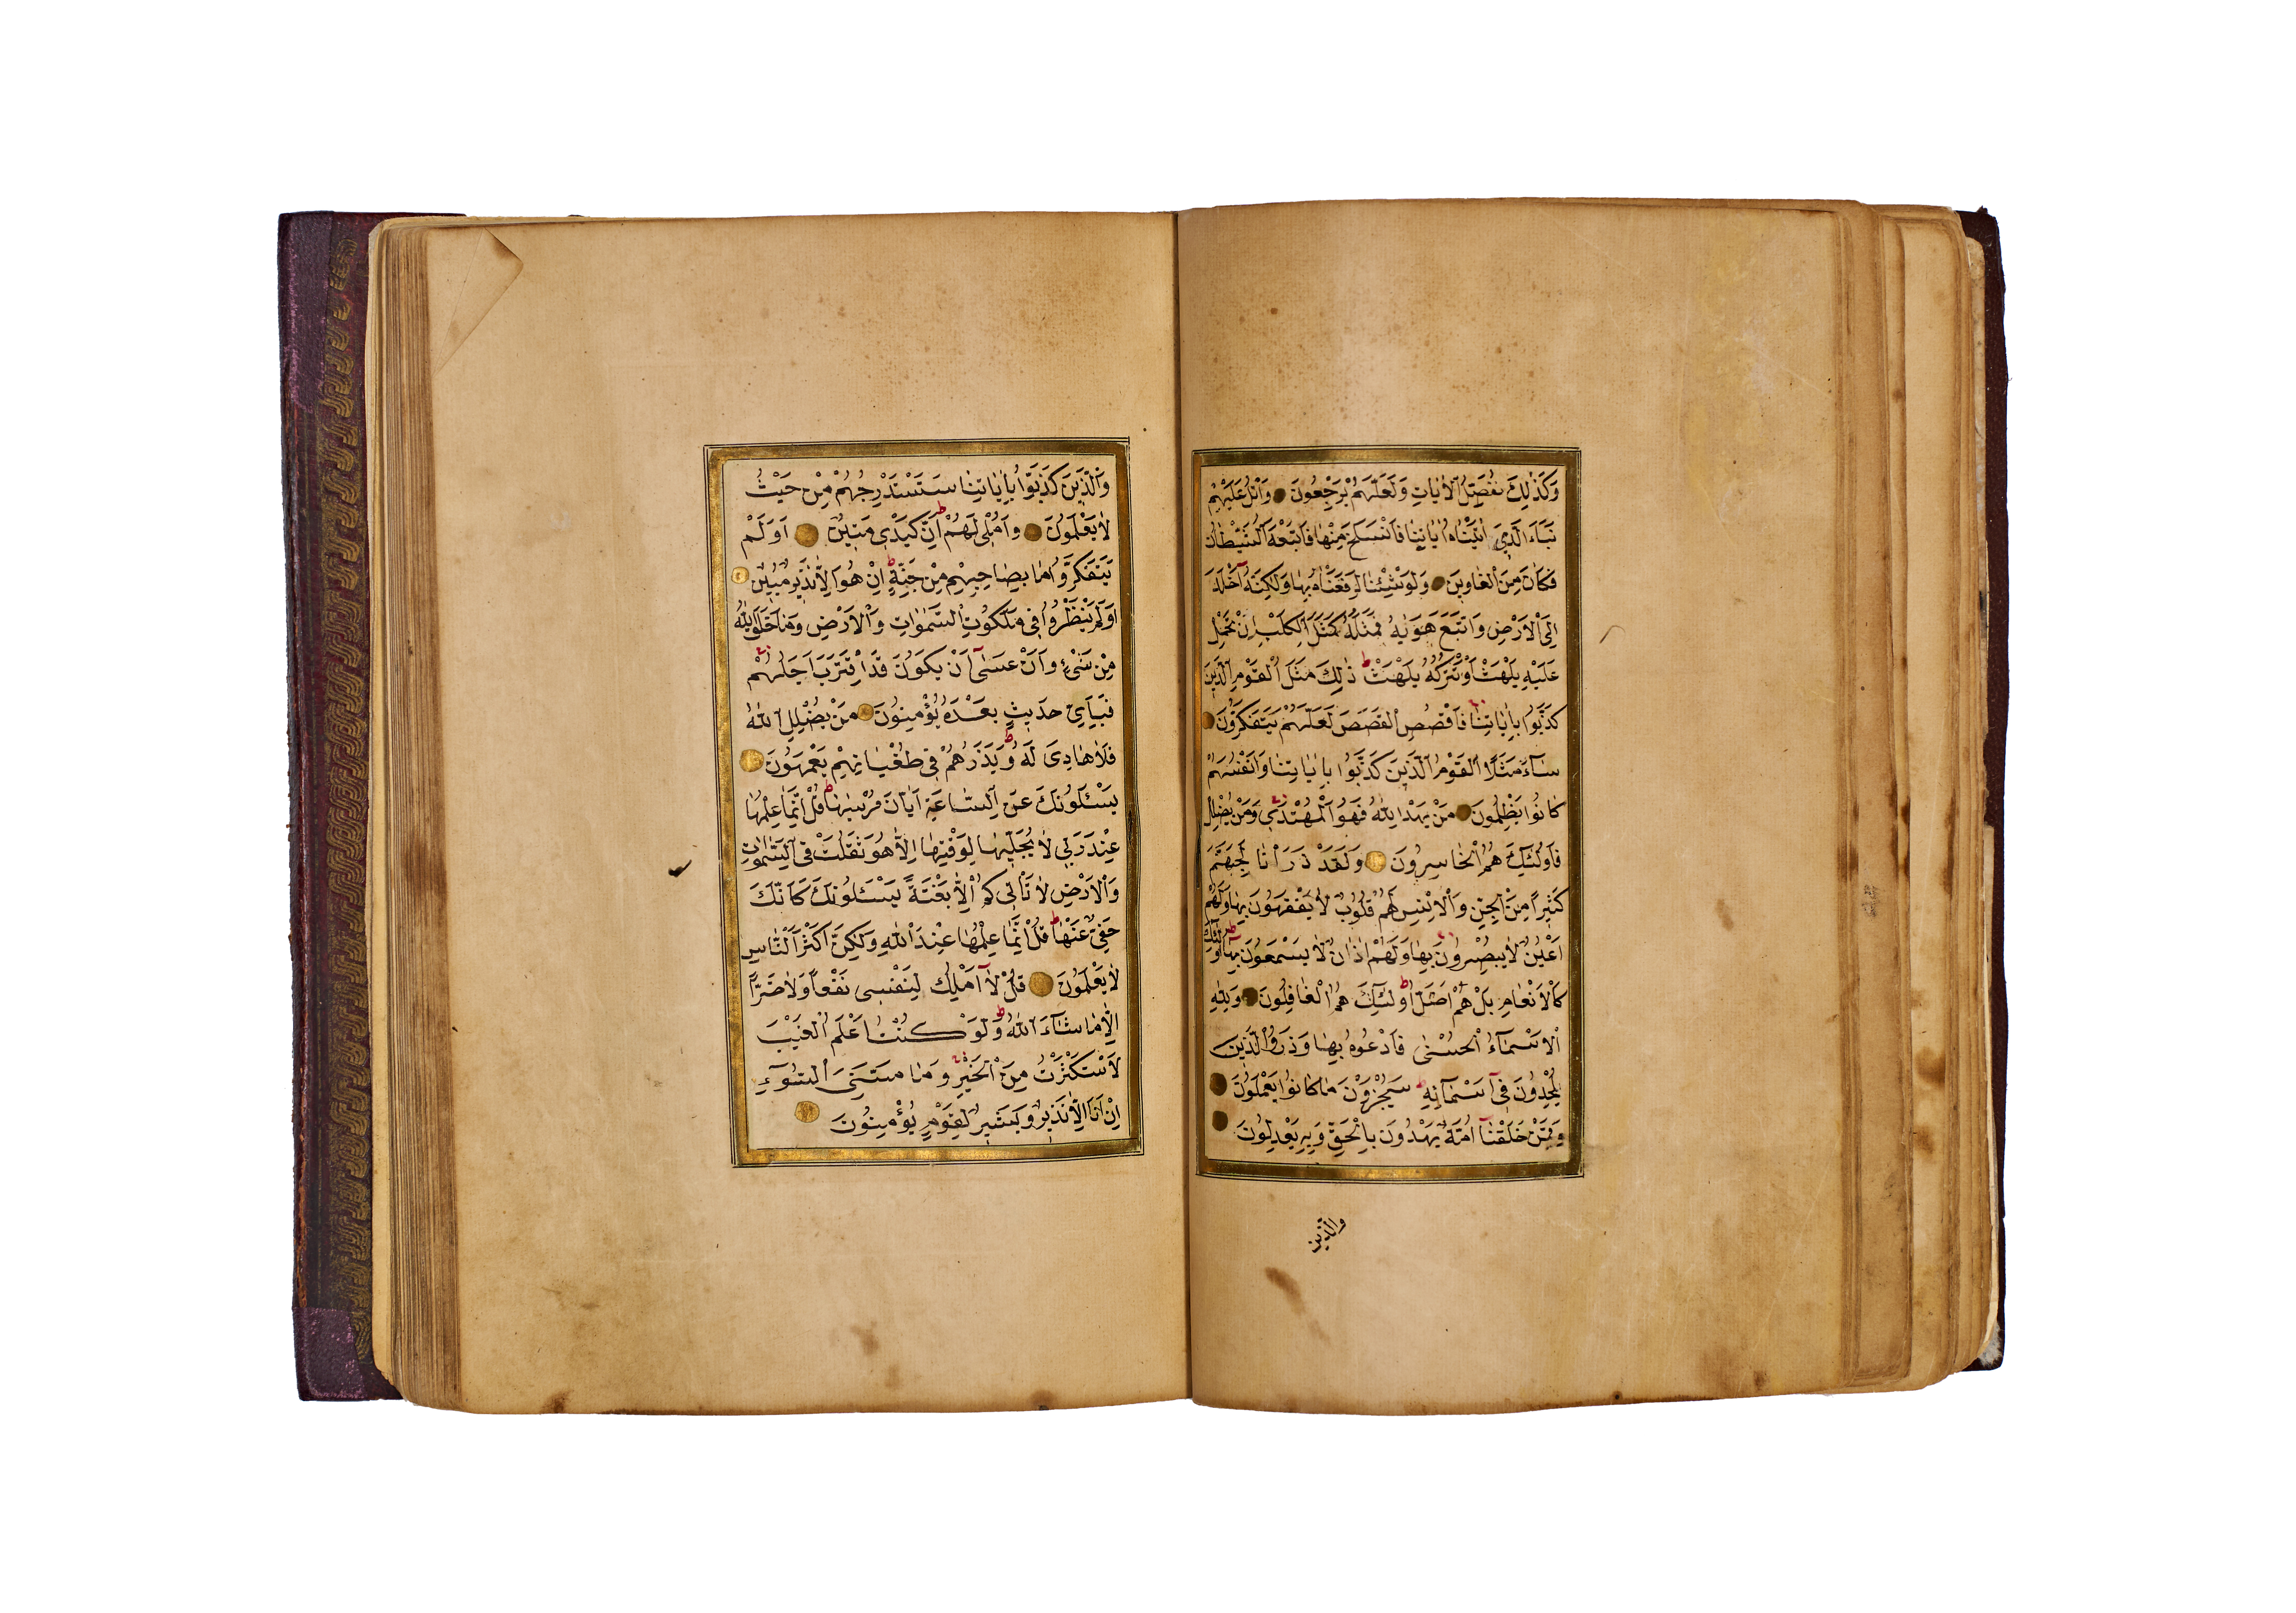 وَكَذٰلِكَ نُفَصِّلُ الْاٰيَاتِ وَلَعَلَّهُمْ يَرْجِعُونَ وَاتْلُ عَلَيْهِمْ
نَبَاَ الَّذٖي اٰتَيْنَاهُ اٰيَاتِنَا فَانْسَلَخَ مِنْهَا فَاَتْبَعَهُ الشَّيْطَانُ
فَكَانَ مِنَ الْغَاوِينَ وَلَوْ شِئْنَا لَرَفَعْنَاهُ بِهَا وَلٰكِنَّهُ اَخْلَدَ
اِلَى الْاَرْضِ وَاتَّبَعَ هَوٰيهُ فَمَثَلُهُ كَمَثَلِ الْكَلْبِ اِنْ تَحْمِلْ
عَلَيْهِ يَلْهَثْ اَوْ تَتْرُكْهُ يَلْهَثْ ط ذٰلِكَ مَثَلُ الْقَوْمِ الَّذِينَ
كَذَّبُوا بِاٰيَاتِنَا فَاقْصُصِ الْقَصَصَ لَعَلَّهُمْ يَتَفَكَّرُونَ
سَآءَ مَثَلًا الْقَوْمُ الَّذِينَ كَذَّبُوا بِاٰيَاتِنَا وَاَنْفُسَهُمْ
كَانُوا يَظْلِمُونَ مَنْ يَهْدِ اللّٰهُ فَهُوَ الْمُهْتَدِي وَمَنْ يُضْلِلْ
فَاُولٰئِكَ هُمُ الْخَاسِرُونَ وَلَقَدْ ذَرَاْنَا لِجَهَنَّمَ
كَثِيرًا مِنَ الْجِنِّ وَالْاِنْسِ لَهُمْ قُلُوبٌ لَا يَفْقَهُونَ بِهَا وَلَهُمْ
اَعْيُنٌ لَا يُبْصِرُونَ بِهَا وَلَهُمْ اٰذَانٌ لَا يَسْمَعُونَ بِهَا ط اُولٰئِكَ
كَالْاَنْعَامِ بَلْ هُمْ اَضَلُّ ط اُولٰئِكَ هُمُ الْغَافِلُونَ وَلِلّٰهِ
الْاَسْمَآءُ الْحُسْنٰى فَادْعُوهُ بِهَا وَذَرُوا الَّذِينَ
يُلْحِدُونَ فِي اَسْمَآئِهِ ط سَيُجْزَوْنَ مَا كَانُوا يَعْمَلُونَ
وَمِمَّنْ خَلَقْنَا اُمَّةٌ يَهْدُونَ بِالْحَقِّ وَبِهِ يَعْدِلُونَ
والَّذين
وَالَّذِينَ كَذَّبُوا بِاٰيَاتِنَا سَنَسْتَدْرِجُهُمْ مِنْ حَيْثُ
لَا يَعْلَمُونَ وَاُمْلِي لَهُمْ ط اِنَّ كَيْدِي مَتِينٌ اَوَلَمْ
يَتَفَكَّرُوا مَا بِصَاحِبِهِمْ مِنْ جِنَّةٍ ط اِنْ هُوَ اِلَّا نَذِيرٌ مُبِينٌ
اَوَلَمْ يَنْظُرُوا فِي مَلَكُوتِ السَّمٰوَاتِ وَالْاَرْضِ وَمَا خَلَقَ اللّٰهُ
مِنْ شَيْءٍ وَاَنْ عَسٰى اَنْ يَكُونَ قَدِ اقْتَرَبَ اَجَلُهُمْ
فَبِاَيِّ حَدِيثٍ بَعْدَهُ يُؤْمِنُونَ مَنْ يُضْلِلِ اللّٰهُ
فَلَا هَادِيَ لَهُ ط وَيَذَرُهُمْ فِي طُغْيَانِهِمْ يَعْمَهُونَ
يَسْـَٔلُونَكَ عَنِ السَّاعَةِ اَيَّانَ مُرْسٰيهَا ط قُلْ اِنَّمَا عِلْمُهَا
عِنْدَ رَبِّي لَا يُجَلِّيهَا لِوَقْتِهَا اِلَّا هُوَ ثَقُلَتْ فِي السَّمٰوَاتِ
وَالْاَرْضِ لَا تَاْتِيكُمْ اِلَّا بَغْتَةً يَسْـَٔلُونَكَ كَاَنَّكَ
حَفِيٌّ عَنْهَا ط قُلْ اِنَّمَا عِلْمُهَا عِنْدَ اللّٰهِ وَلٰكِنَّ اَكْثَرَ النَّاسِ
لَا يَعْلَمُونَ قُلْ لَا اَمْلِكُ لِنَفْسِي نَفْعًا وَلَا ضَرًّا
اِلَّا مَا شَآءَ اللّٰهُ ط وَلَوْ كُنْتُ اَعْلَمُ الْغَيْبَ
لَاسْتَكْثَرْتُ مِنَ الْخَيْرِ وَمَا مَسَّنِيَ السُّوٓءُ
اِنْ اَنَا اِلَّا نَذِيرٌ وَبَشِيرٌ لِقَوْمٍ يُؤْمِنُونَ